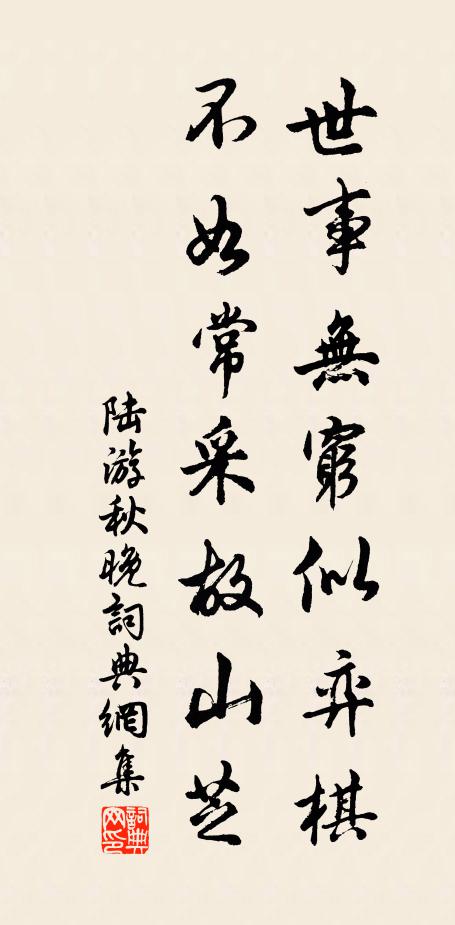 世事無窮似弈棋
不如常采故山芝
陆游秋晚詞典網集
詞典網印